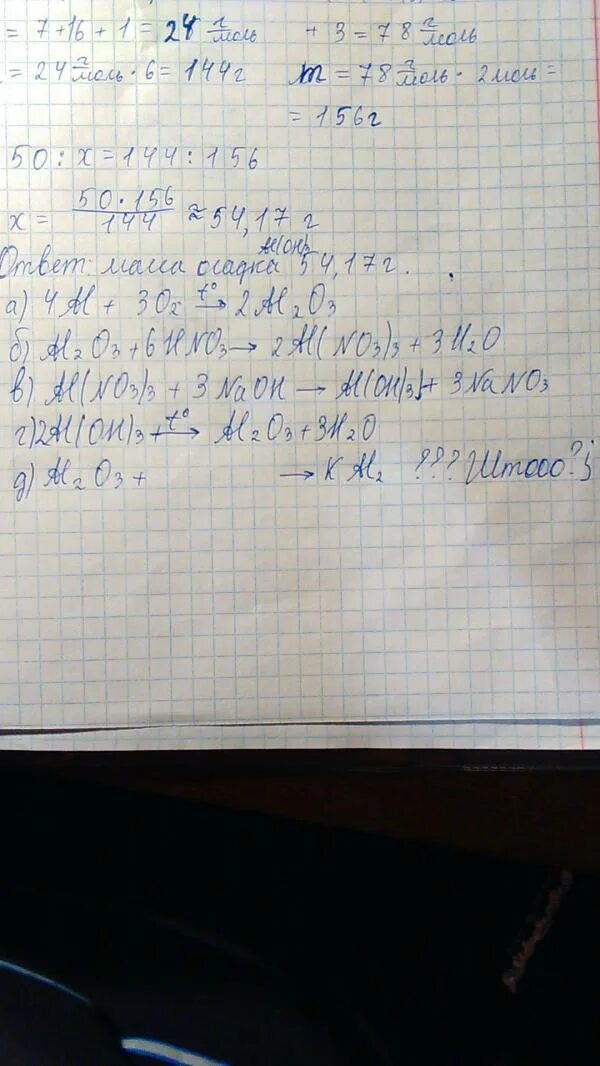 = 7+16+1 = 24 г/моль + 3 = 78 г/моль
= 24 г/моль · 6 = 144г m = 78 г/моль · 2моль =
= 156г
50 : x = 144 : 156
x = 50·156/144 ≈ 54,17 г
Al(OH)3
Ответ: масса осадка 54,17г.
а) 4Al + 3O2 t°→ 2Al2O3
б) Al2O3 + 6HNO3 → 2Al(NO3)3 + 3H2O
в) Al(NO3)3 + 3NaOH → Al(OH)3↓ + 3NaNO3
г) 2Al(OH)3 t°→ Al2O3 + 3H2O
д) Al2O3 + → KAl2 ??? Штооо?